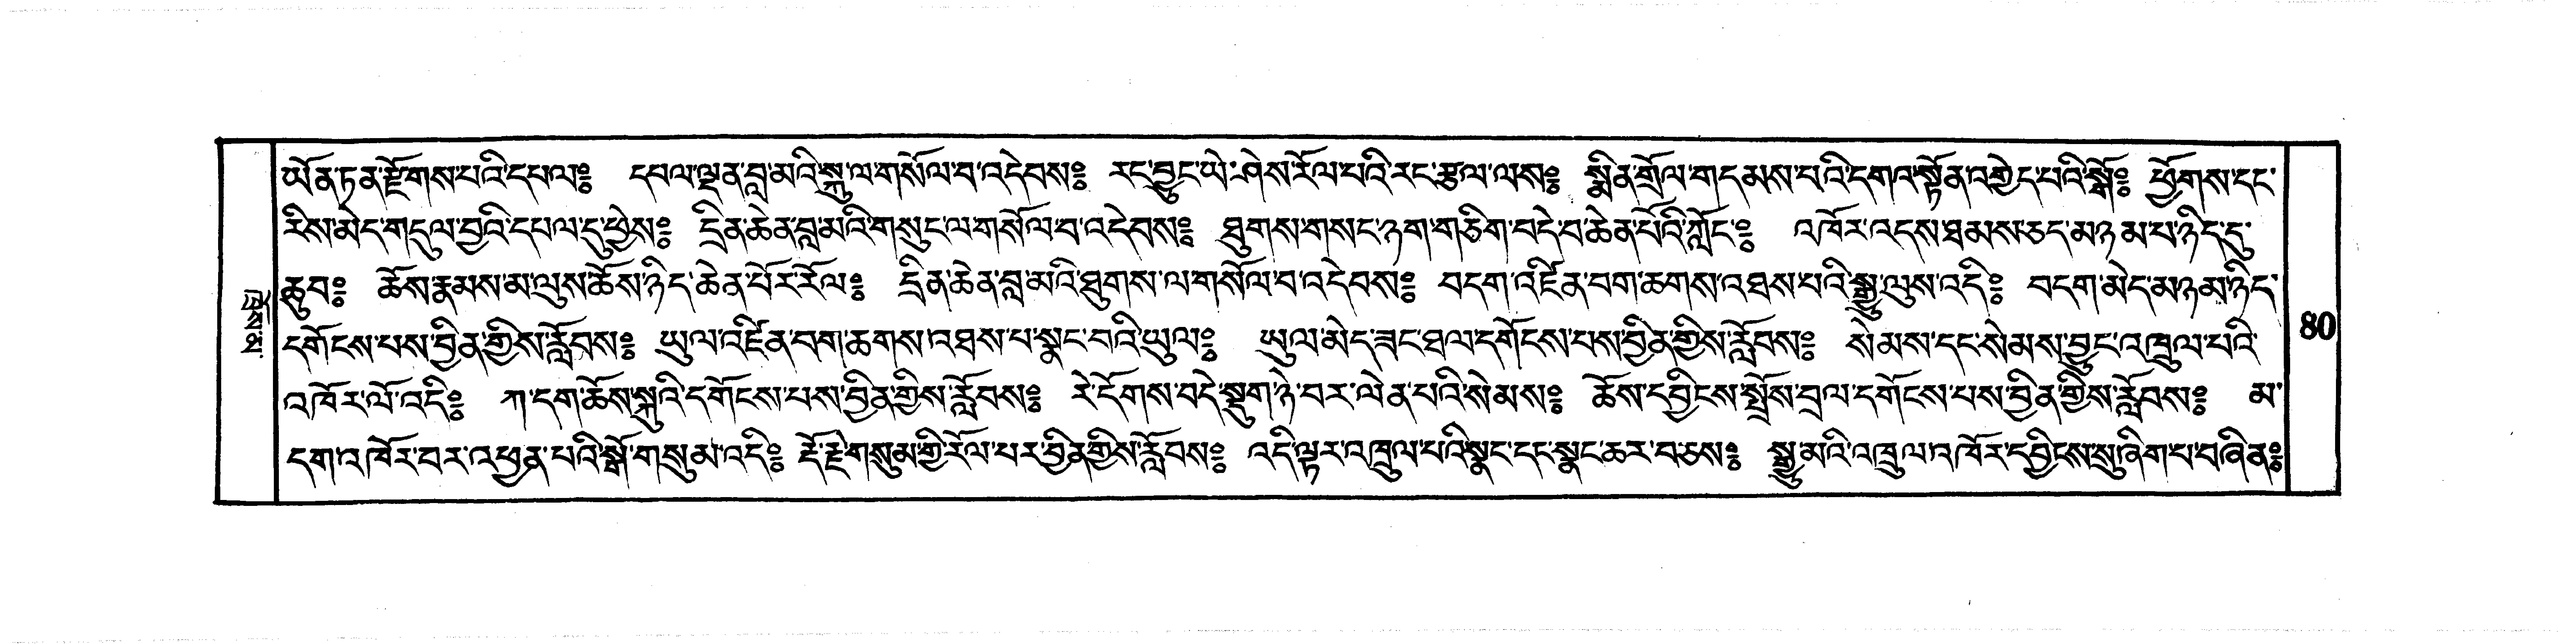 ཡོན་ཏན་རྫོགས་པའི་དཔལ༔ དཔལ་ལྡན་བླ་མའི་སྐུ་ལ་གསོལ་བ་འདེབས༔ རང་བྱུང་ཡེ་ཤེས་རོལ་པའི་རང་རྩལ་ལས༔ སྨིན་གྲོལ་གདམས་པའི་དགའ་སྟོན་འགྱེད་པའི་སྒོ༔ ཕྱོགས་དང་
རིས་མེད་གདུལ་བྱའི་དཔལ་དུ་ཕྱེས༔ དྲིན་ཆེན་བླ་མའི་གསུང་ལ་གསོལ་བ་འདེབས༔ ཐུགས་གསང་ཉག་གཅིག་བདེ་བ་ཆེན་པོའི་ཀློང་༔ འཁོར་འདས་ཐམས་ཅད་མཉམ་པ་ཉིད་དུ་
ཆུབ༔ ཆོས་རྣམས་མ་ལུས་ཆོས་ཉིད་ཆེན་པོར་རོལ༔ དྲིན་ཆེན་བླ་མའི་ཐུགས་ལ་གསོལ་བ་འདེབས༔ བདག་འཛིན་བག་ཆགས་འཐས་པའི་སྒྱུ་ལུས་འདི༔ བདག་མེད་མཉམ་ཉིད་
དགོངས་པས་བྱིན་གྱིས་རློབས༔ ཡུལ་འཛིན་བག་ཆགས་འཐས་པ་སྣང་བའི་ཡུལ༔ ཡུལ་མེད་ཟང་ཐལ་དགོངས་པས་བྱིན་གྱིས་རློབས༔ སེམས་དང་སེམས་བྱུང་འཁྲུལ་པའི་
འཁོར་ལོ་འདི༔ ཀ་དག་ཆོས་སྐུའི་དགོངས་པས་བྱིན་གྱིས་རློབས༔ རེ་དོགས་བདེ་སྡུག་ཉེ་བར་ལེན་པའི་སེམས༔ ཆོས་དབྱིངས་སྤྲོས་བྲལ་དགོངས་པས་བྱིན་གྱིས་རློབས༔ མ་
དག་འཁོར་བར་འཕྱན་པའི་སྒོ་གསུམ་འདི༔ རྡོ་རྗེ་གསུམ་གྱི་རོལ་པར་བྱིན་གྱིས་རློབས༔ འདི་ལྟར་འཁྲུལ་པའི་སྣང་དང་སྣང་ཆར་བཅས༔ སྒྱུ་མའི་འཁྲུལ་འཁོར་དབྱིངས་སུ་ཞིག་པ་བཞིན༔
80